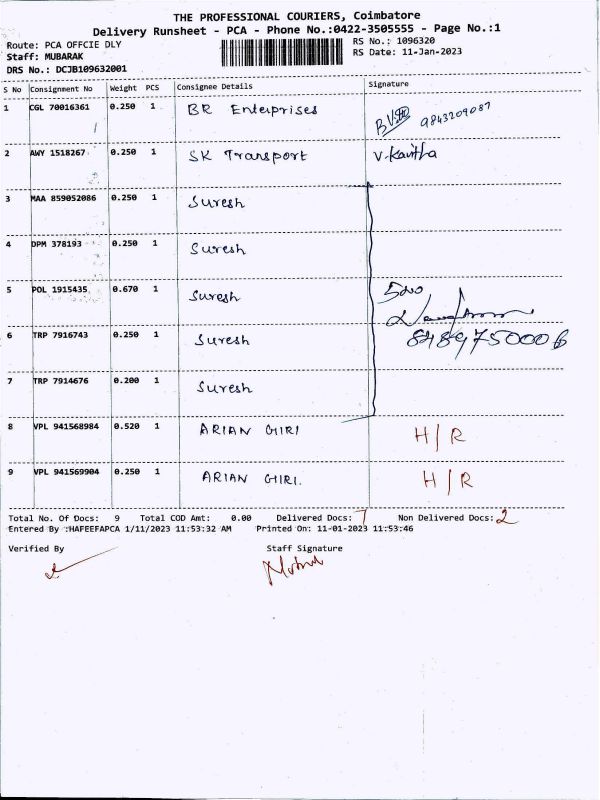 THE PROFESSIONAL COURIERS, Coimbatore
Delivery Runsheet - PCA - Phone No.:0422-3505555 - Page No.:1
Route: PCA OFFCIE DLY RS No.: 1096320
Staff: MUBARAK RS Date: 11-Jan-2023
DRS No.: DCJB109632001
S No Consignment No Weight PCS Consignee Details Signature
1 CGL 70016361 0.250 1 BR Enterprises 9843209087
2 AWY 1518267 0.250 1 SK Transport V.Kavitha
3 MAA 859052086 0.250 1 Suresh
4 DPM 378193 0.250 1 Suresh
5 POL 1915435 0.670 1 Suresh
6 TRP 7916743 0.250 1 Suresh 8489750006
7 TRP 7914676 0.200 1 Suresh
8 VPL 941568984 0.520 1 ARIAN GIRI H/R
9 VPL 941569904 0.250 1 ARIAN GIRI. H/R
Total No. Of Docs: 9 Total COD Amt: 0.00 Delivered Docs: 7 Non Delivered Docs: 2
Entered By :HAFEEFAPCA 1/11/2023 11:53:32 AM Printed On: 11-01-2023 11:53:46
Verified By Staff Signature